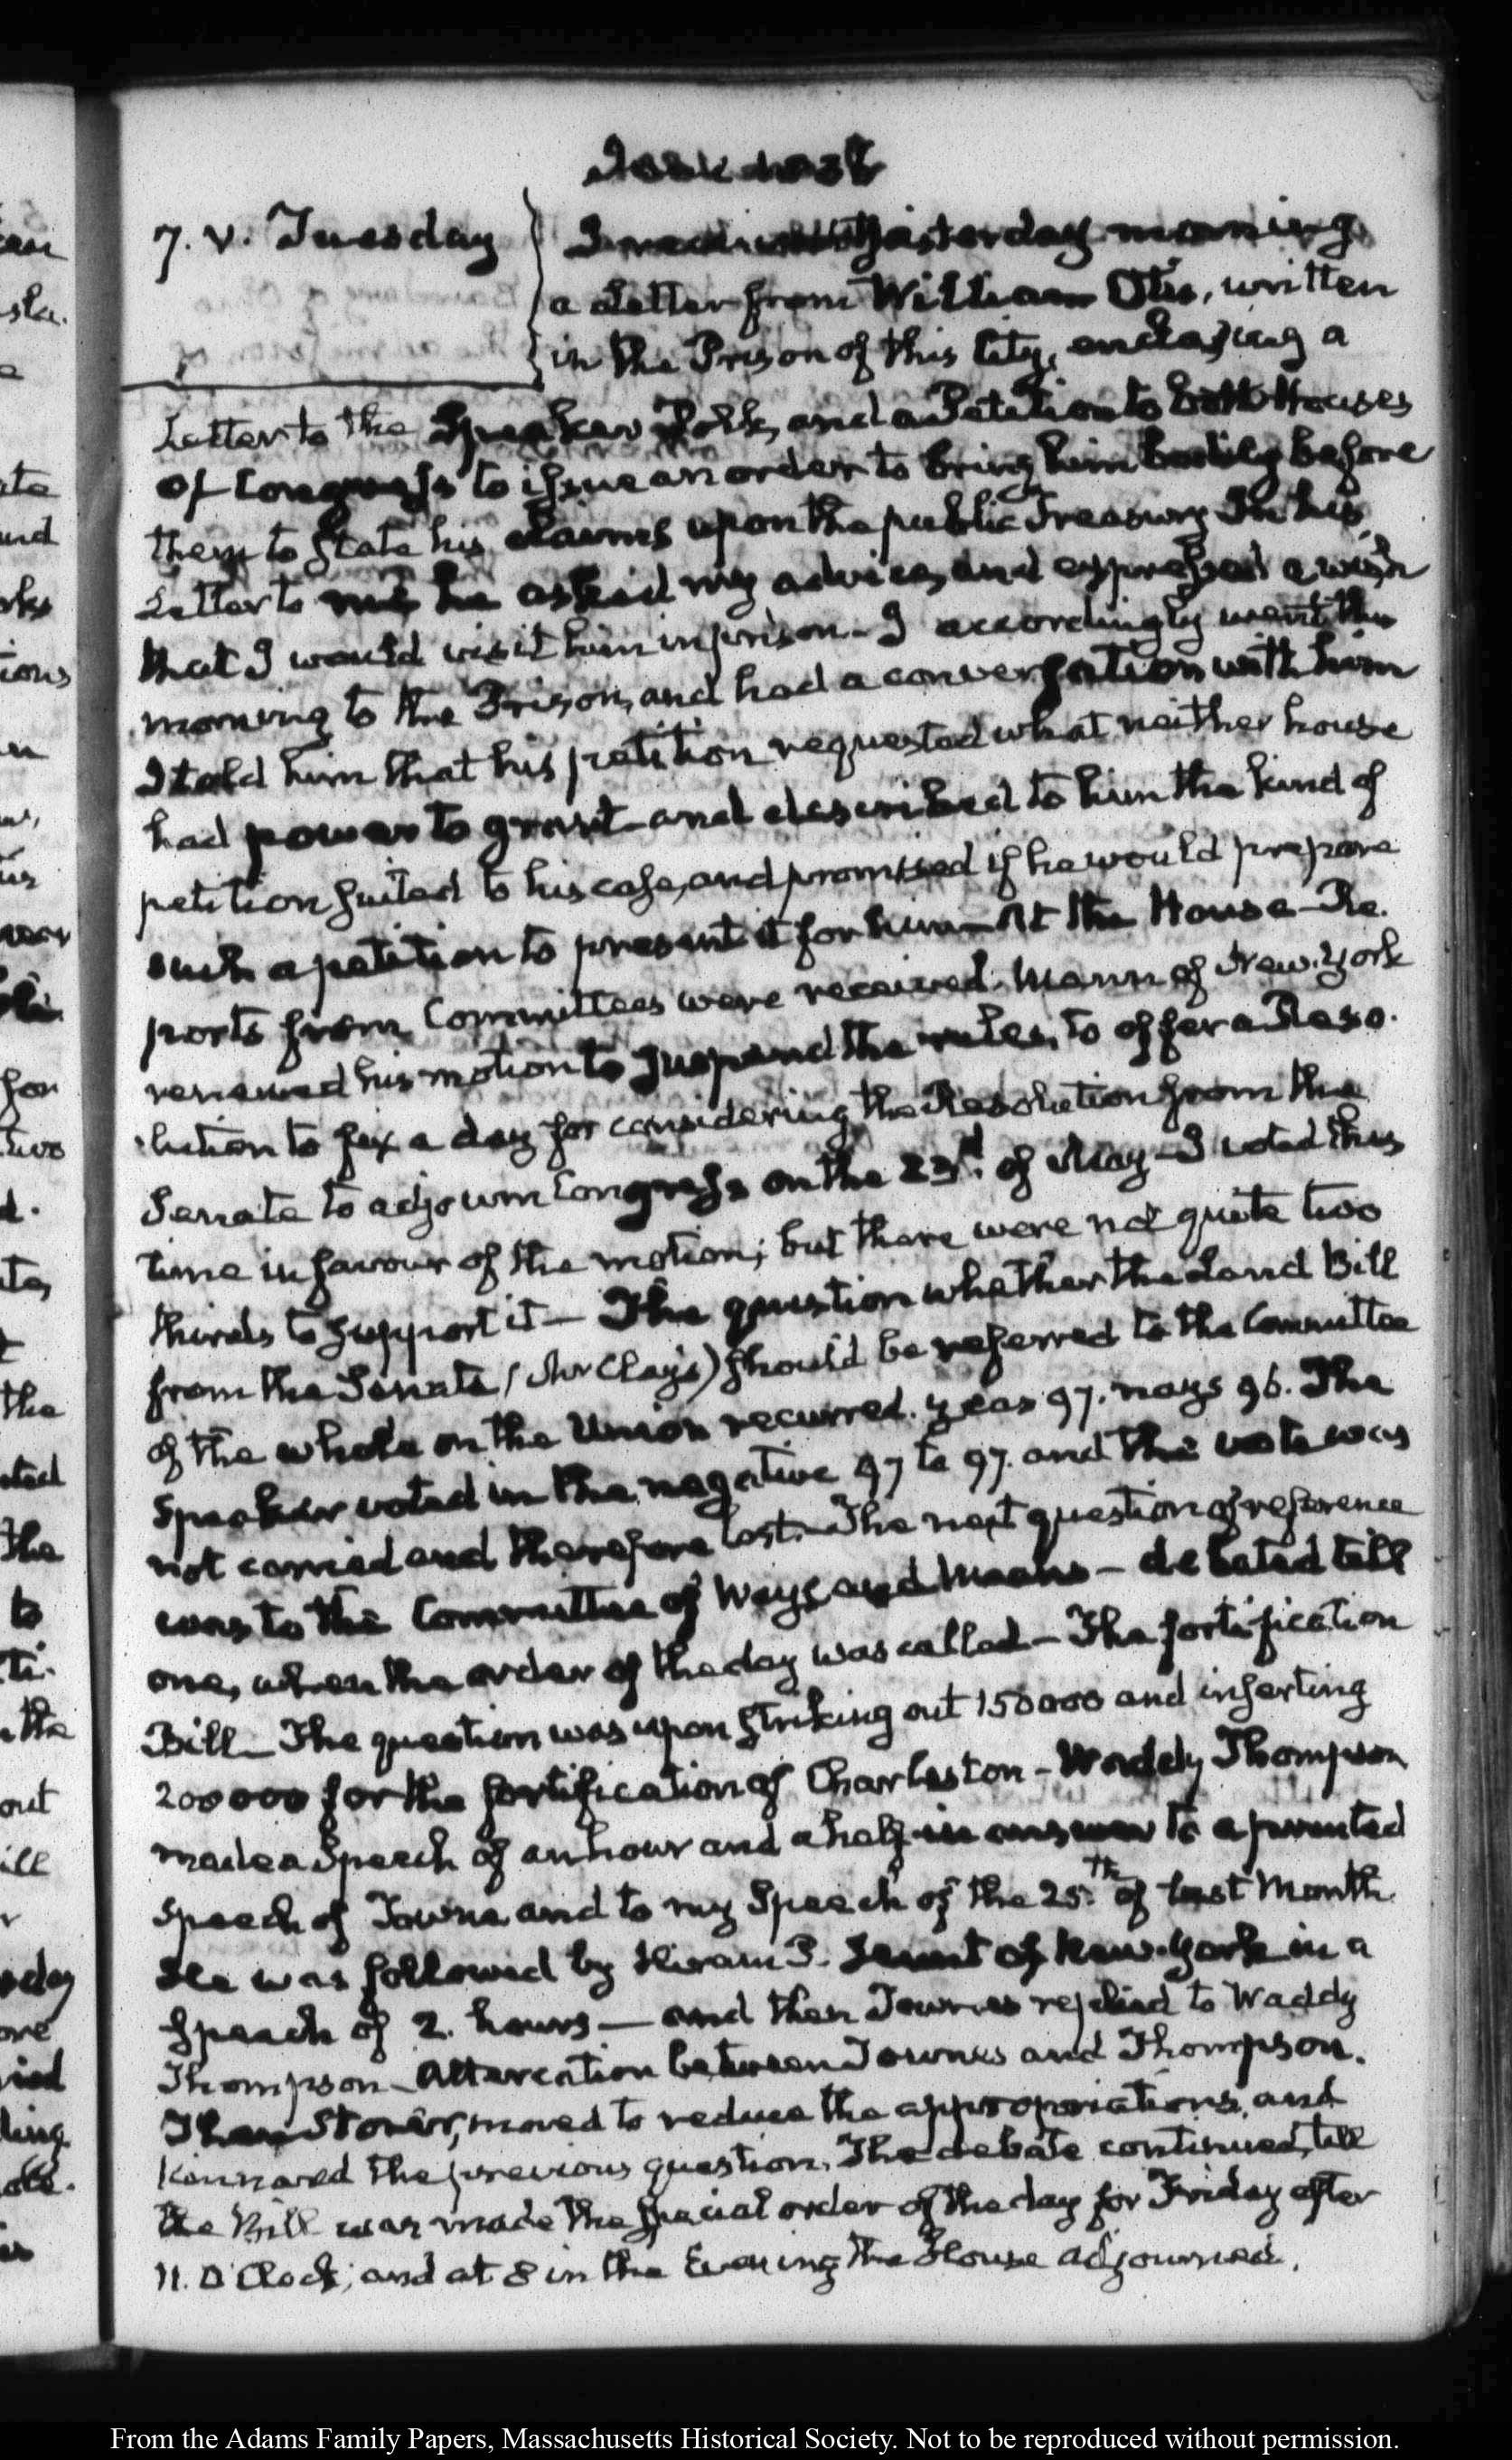 7. V. Tuesday
I received yesterday morning
a Letter from William Otis, written
in the Prison of this City, enclosing a
Letter to the Speaker Polk, and a Petition to both Houses
of Congress to issue an order to bring him bodily before
them to State his claims upon the public Treasury In his
Letter to me he asked my advice, and expressed a wish
that I would visit him in prison. I accordingly went this
morning to the Prison, and had a conversation with him
I told him that his petition requested what neither house
had power to grant—and described to him the kind of
petition suited to his case, and promised if he would prepare
such a petition to present it for him—At the House—Re.
ports from Committees were received. Mann of New-York
renewed his motion to suspend the rules, to offer a Reso.
lution to fix a day for considering the Resolution from the
Senate to adjourn Congress on the 23d. of May—I voted this
time in favour of the motion; but there were not quite two
thirds to support it—The question whether the Land Bill
from the Senate, (Mr Clay's) should be referred to the Committee
of the whole on the Union recurred. yeas 97. nays 96. The
Speaker voted in the negative 97 to 97. and the vote was
not carried and therefore lost. The next question of reference
was to the Committee of Ways and Means—debated till
one, when the order of the day was called—The fortification
Bill—The question was upon striking out 150000 and inserting
200000 for the fortification of Charleston—Waddy Thompson
made a Speech of an hour and a half in answer to a printed
speech of Towns and to my Speech of the 25.th of last Month
He was followed by Hiram P. Hunt of New-York in a
Speech of 2. hours—and then Townes replied to Waddy
Thompson—Altercation between Townes and Thompson.
Then Storer, moved to reduce the appropriations, and
Kinnard the previous question. The debate continued, till
the Bill was made the special order of the day for Friday after
11. O'Clock; and at 8 in the Evening the House adjourned.
From the Adams Family Papers, Massachusetts Historical Society. Not to be reproduced without permission.